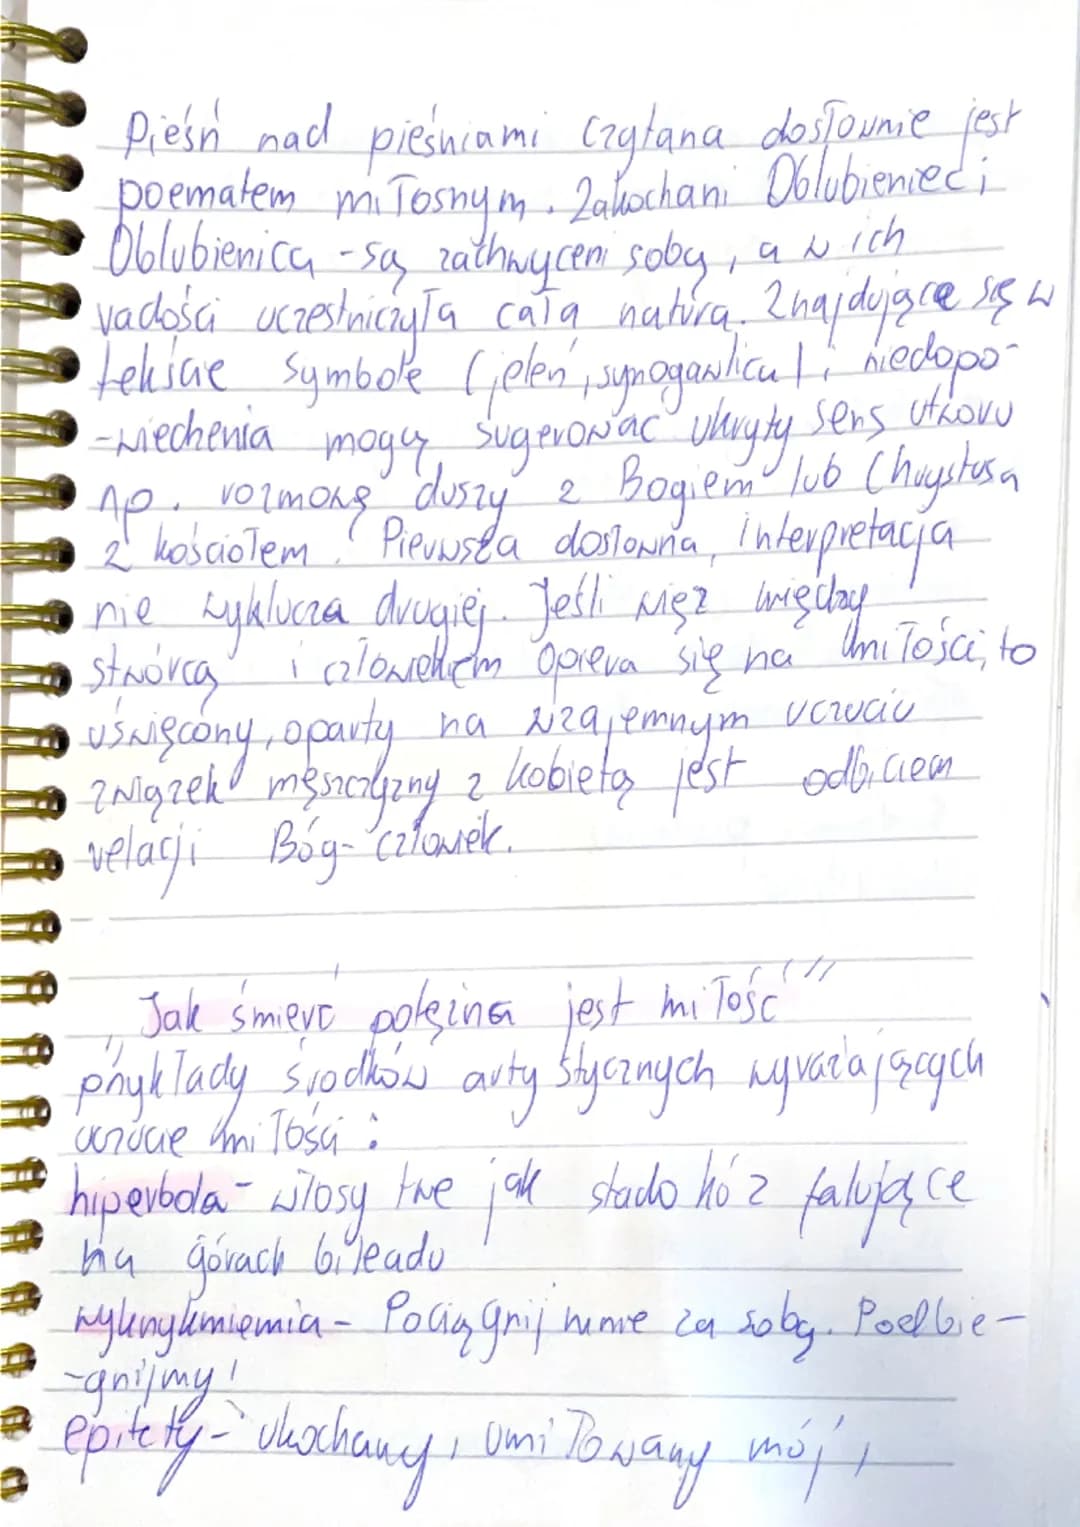 Pieśń nad pieśniami czytana dosłownie jest
poematem miłosnym. Zakochani Oblubieniec i
Oblubienica - są zachwyceni sobą, a w ich
radości uczestniczyła cała natura. Znajdujące się w
tekście symbole (jeleń, synogarlica) i niedopo-
-wiedzenia mogą sugerować ukryty sens utworu
np. rozmowę duszy z Bogiem lub Chrystusa
z kościołem. Pierwsza dosłowna, interpretacja
nie wyklucza drugiej. Jeśli więź między
stwórcą i człowiekiem opiera się na miłości, to
uświęcony, oparty na wzajemnym uczuciu
związek męszczyzny z kobietą jest odbiciem
relacji Bóg-człowiek.
"Jak śmierć potężna jest miłość"
przykłady środków artystycznych wyrażających
uczucie miłości:
hiperbola - włosy twe jak stado kóz falujące
na górach Gileadu
wykrzyknienia - Pociągnij mnie za sobą. Podbie-
-gnijmy!
epitety - ukochany, umiłowany mój,